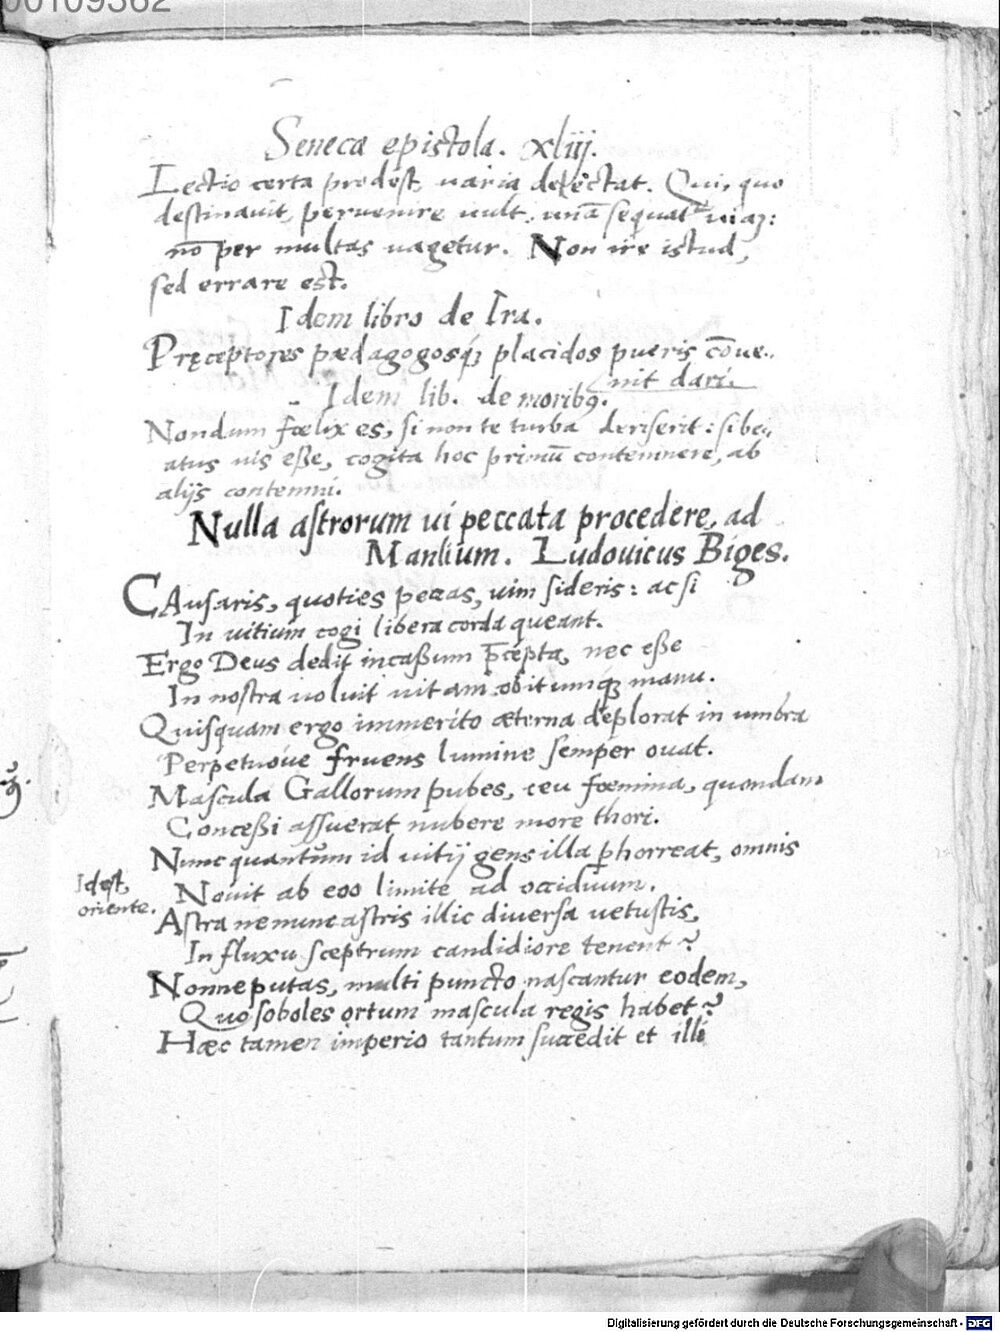 00109362
Seneca epistola. xliij.
Lectio certa prodest, varia delectat. Qui, quo
destinauit, peruenire uult, unā sequat᷑ uiaꝫ:
nō per multas uagetur. Non ire istud,
sed errare est.
Idem libro de Ira.
Pręceptores pædagogosqꝫ placidos pueris cōue..
nit dari.
Idem lib. de moribꝰ.
Nondum fœlix es, si non te turba deriserit: si be..
atus uis eße, cogita hoc primū contemnere, ab
alijs contemni.
Nulla astrorum ui peccata procedere, ad
Manlium. Ludouicus Biges.
CAusaris, quoties peccas, uim sideris: ac si
In uitium cogi libera corda queant.
Ergo Deus dedit incaßum p̄cepta, nec eße
In nostra uoluit uitam obitumqꝫ manu.
Quisquam ergo immerito æterna deplorat in umbra
Perpetuoue fruens lumine semper ouat.
Mascula Gallorum pubes, ceu fœmina, quondam
Conceßi assuerat nubere more thori.
Nunc quantum id uitij gens illa p̱horreat, omnis
Idest,
oriente.
Nouit ab eoo limite ad occiduum.
Astra ne nunc astris illic diuersa uetustis,
Influxu sceptrum candidiore tenent?
Nonne putas, multi puncto nascantur eodem,
Quo soboles ortum mascula regis habet?
Hæc tamen imperio tantum succedit et illi
Digitalisierung gefördert durch die Deutsche Forschungsgemeinschaft - DFG